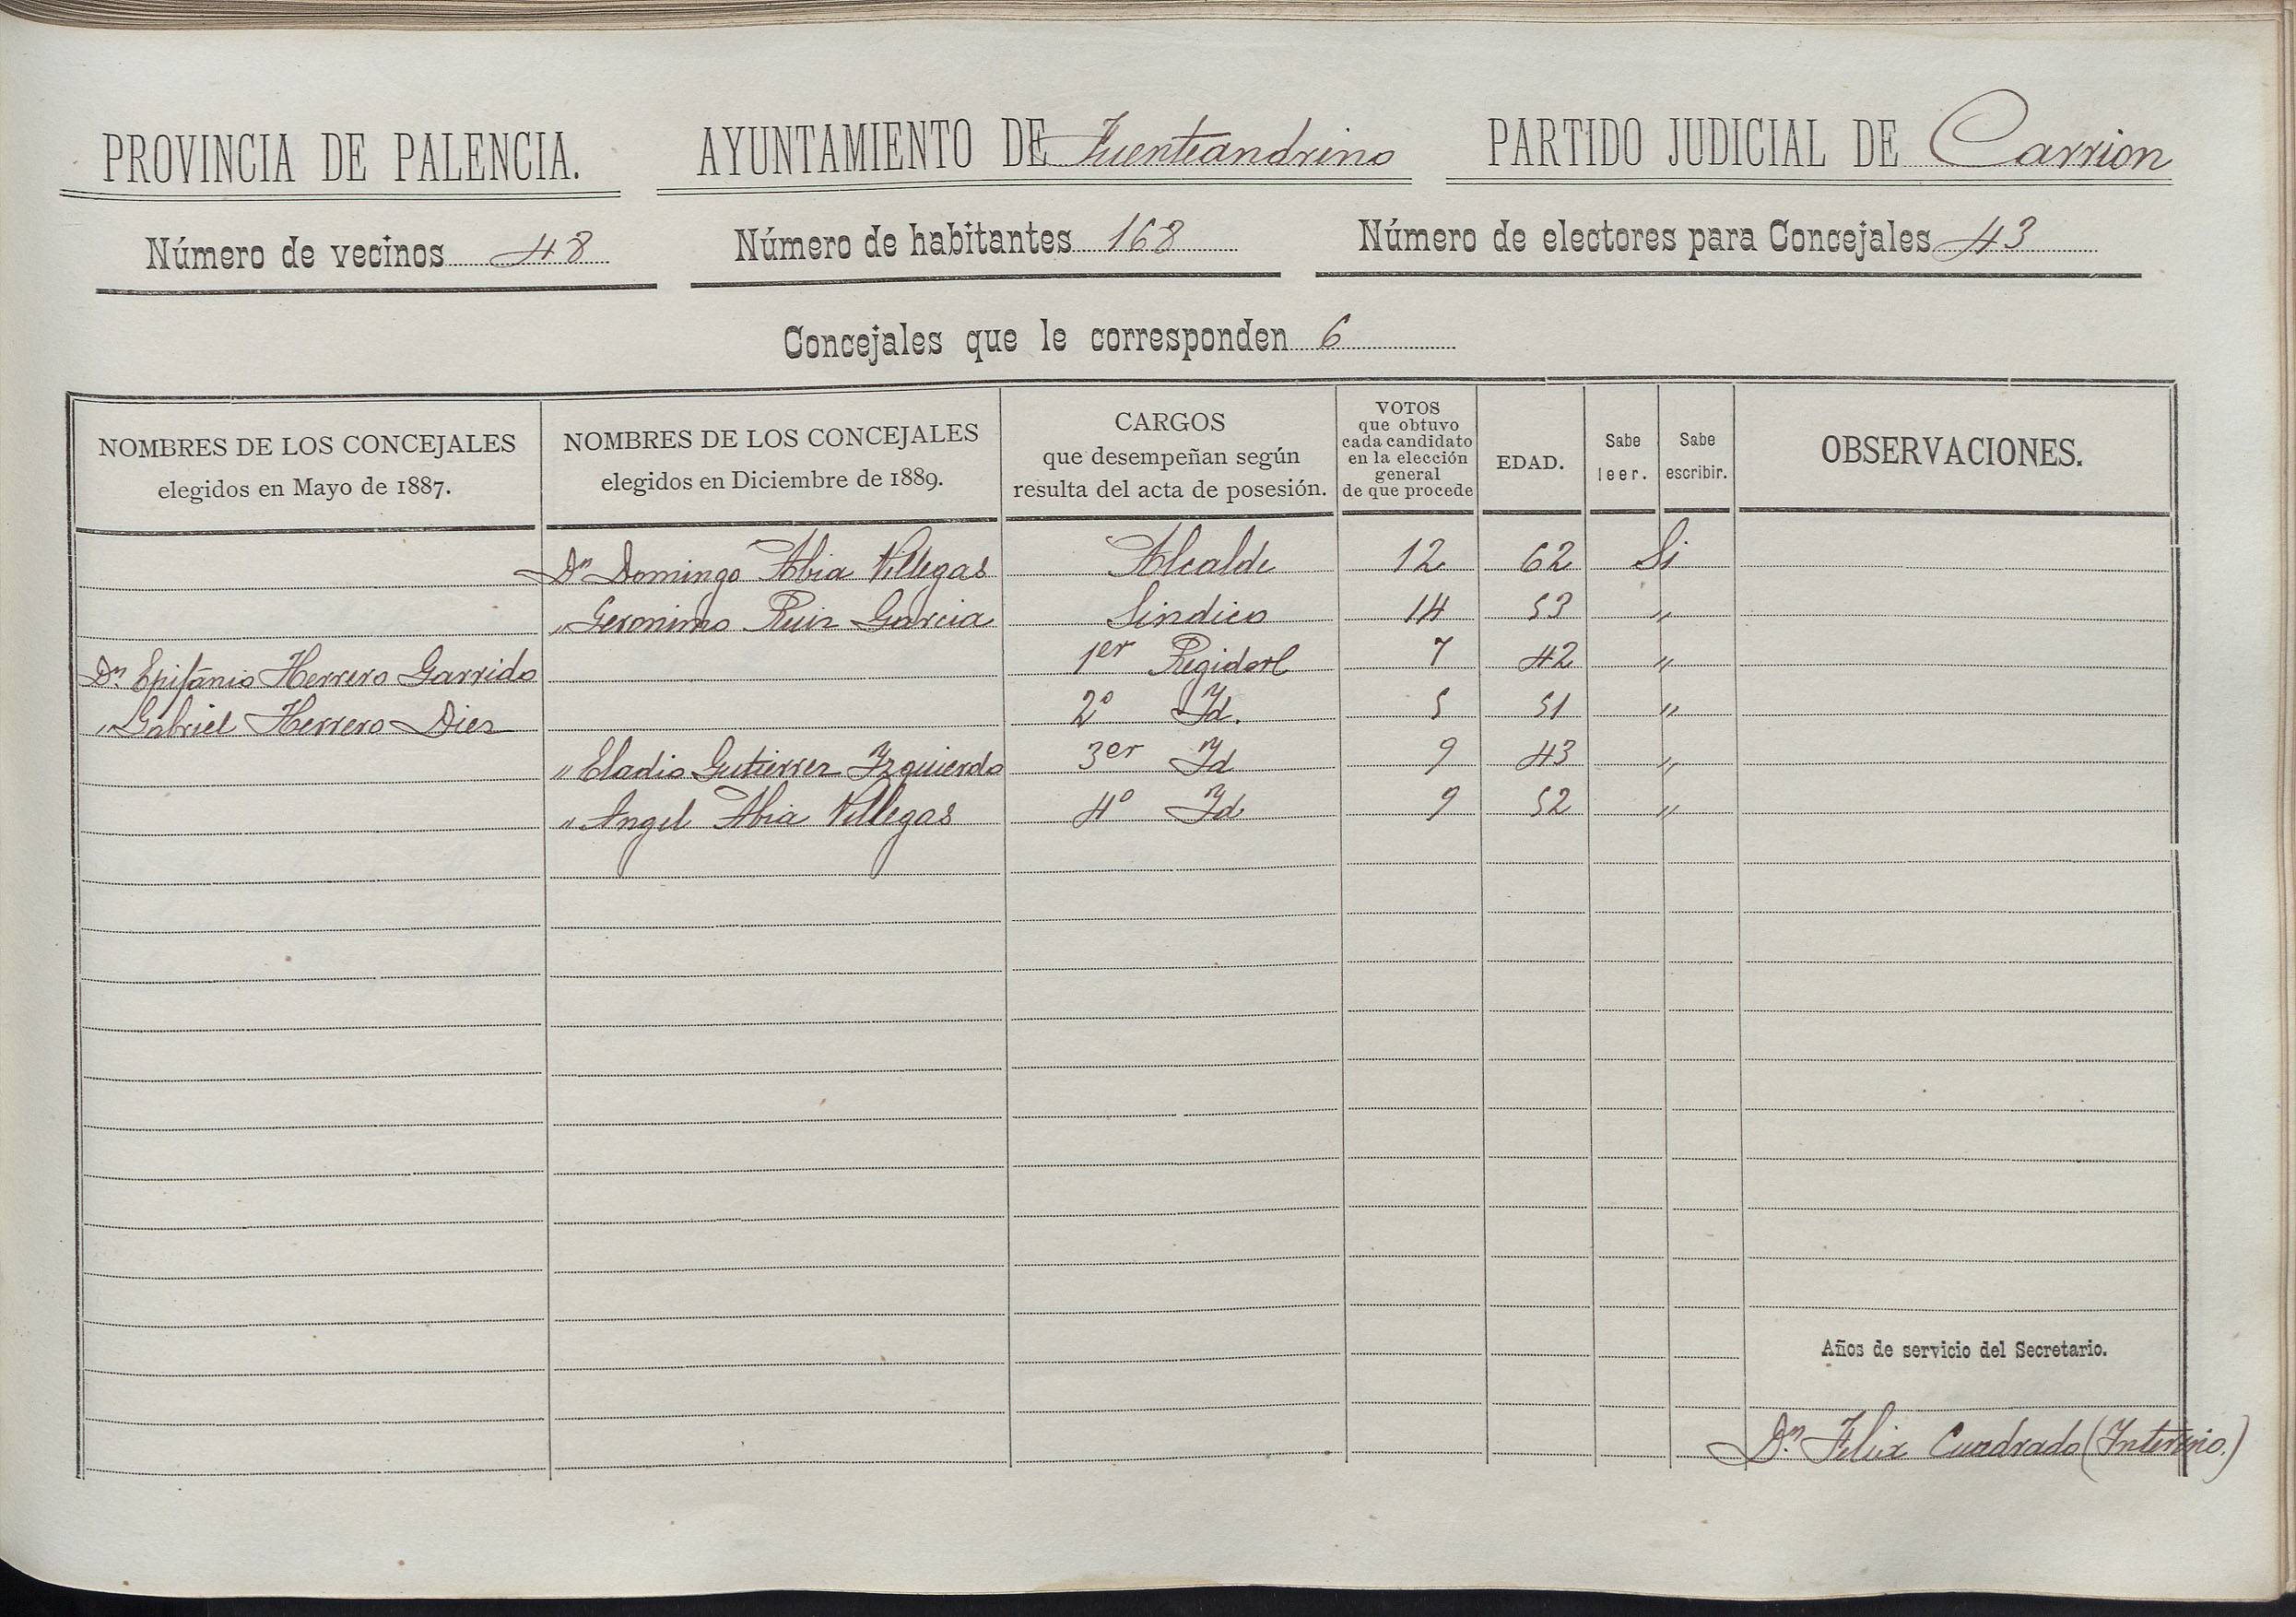 PROVINCIA DE PALENCIA. AYUNTAMIENTO DE Fuenteandrino PARTIDO JUDICIAL DE Carrion
Número de vecinos 48 Número de habitantes 168 Número de electores para Concejales 43
Concejales que le corresponden 6
NOMBRES DE LOS CONCEJALES
elegidos en Mayo de 1887.
NOMBRES DE LOS CONCEJALES
elegidos en Diciembre de 1889.
CARGOS
que desempeñan según
resulta del acta de posesión.
VOTOS
que obtuvo
cada candidato
en la elección
general
de que procede
EDAD.
Sabe
leer.
Sabe
escribir.
OBSERVACIONES.
Dn Domingo Abia Villegas Alcalde 12 62 Si
" Geronimo Ruiz Garcia Sindico 14 53 "
Dn. Epifanio Herrero Garrido 1er Regidor 7 42 "
" Gabriel Herrero Diez 2º Id. 5 51 "
" Eladio Gutierrez Izquierdo 3er Id 9 43 "
" Angel Abia Villegas 4º Id 9 52 "
Años de servicio del Secretario.
Dn. Felix Cuadrado (Interino.)